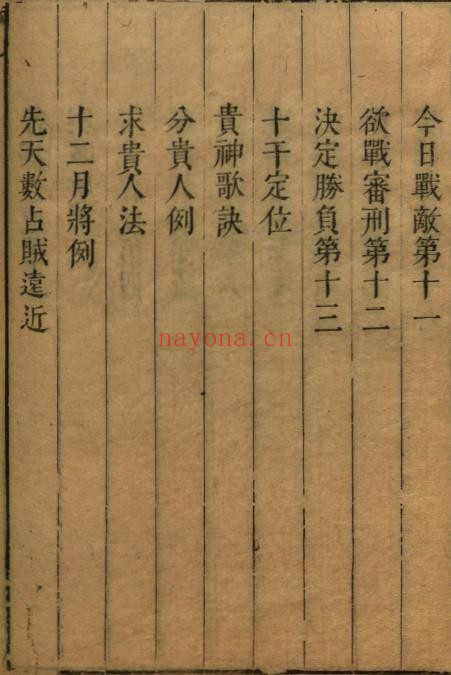 今日戰敵第十一
欲戰審刑第十二
決定勝負第十三
十干定位
貴神歌訣
分貴人例
求貴人法
十二月將例
先天數占賊遠近
nayona.cn